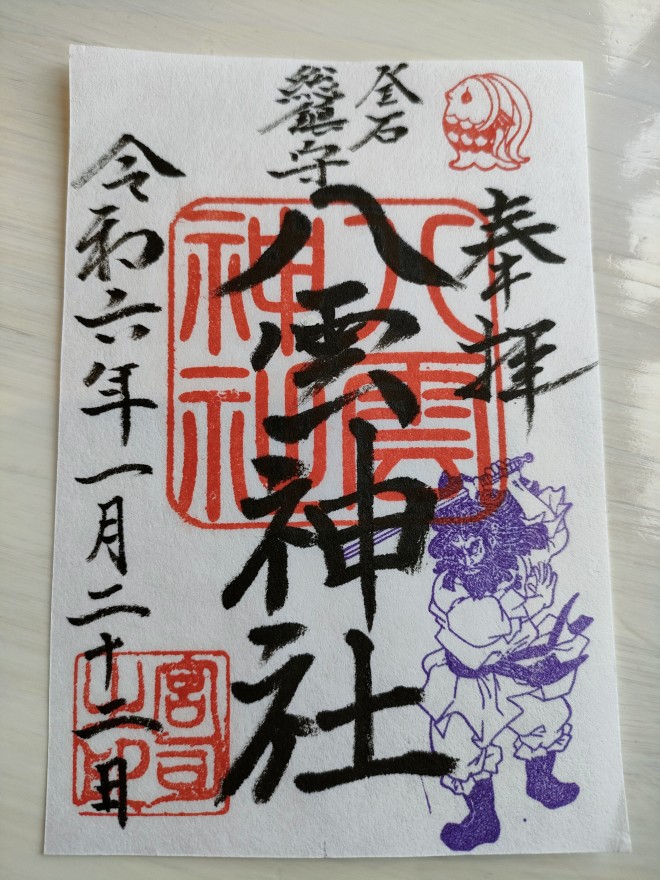 奉拝
釜石
総鎮守
八雲神社
令和六年一月二十二日
八雲
神社
宮司
之印